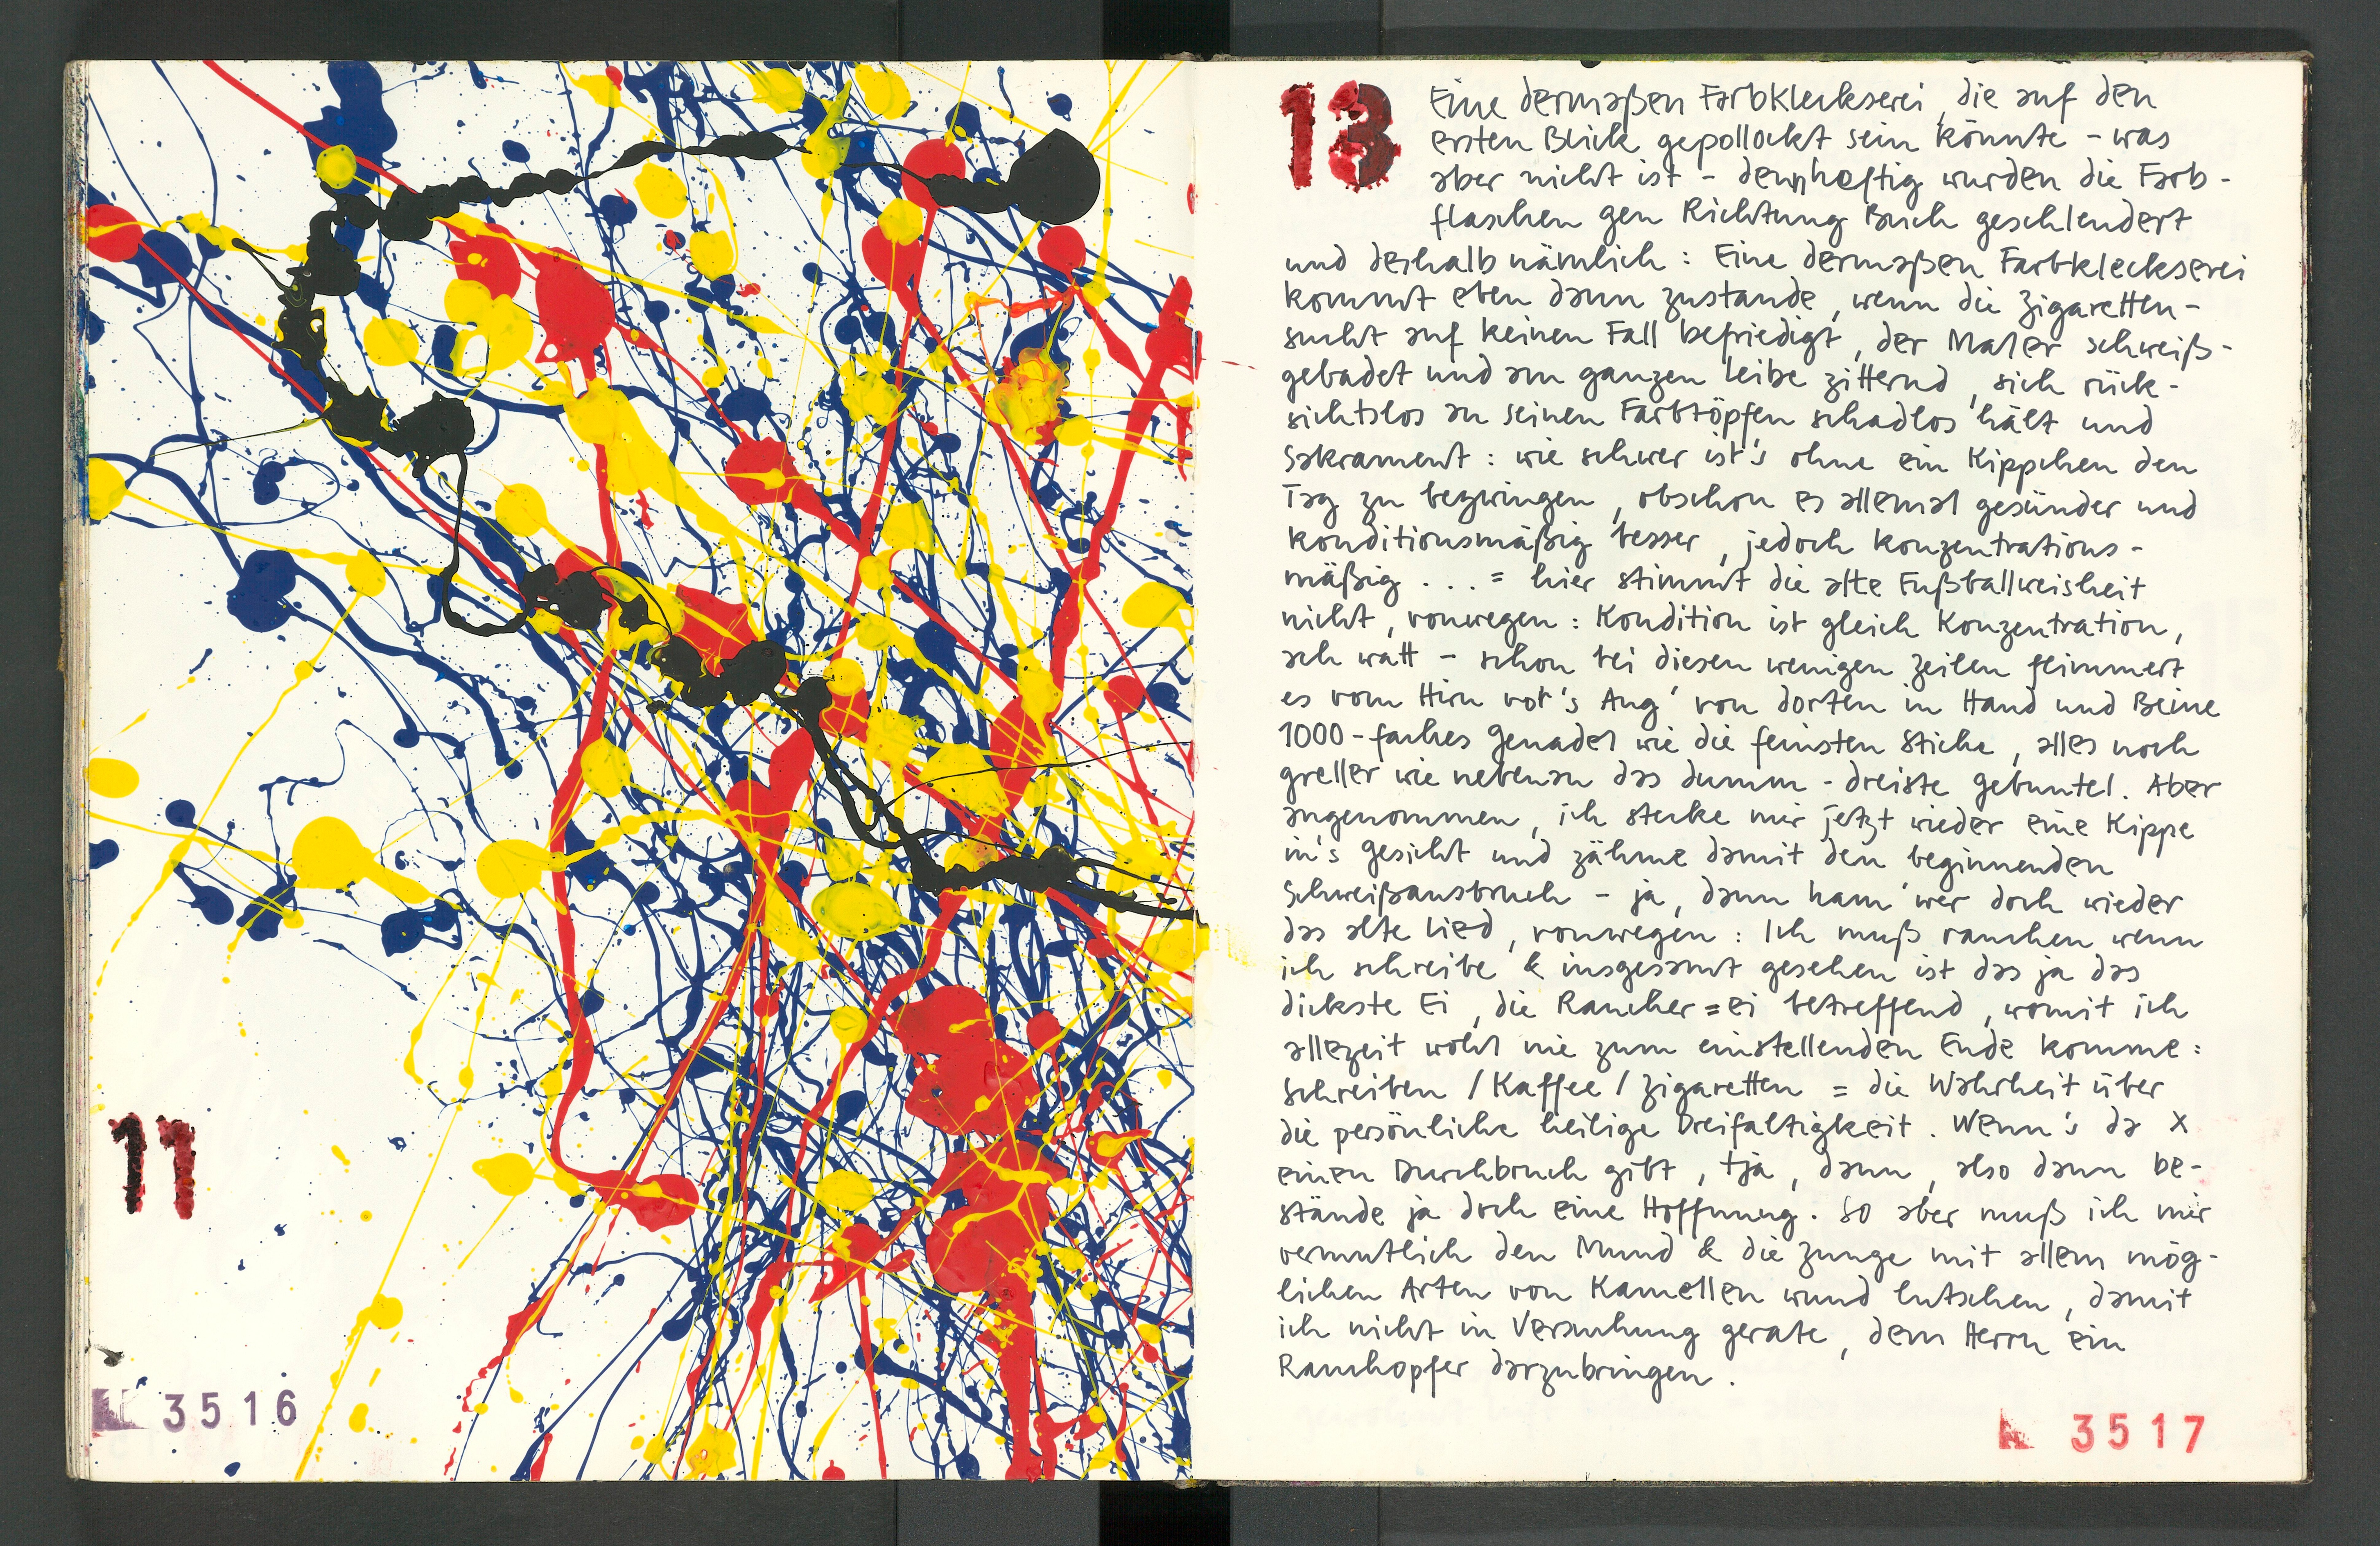 11
3516
13
Eine dermaßen Farbkleckserei, die auf den
ersten Blick gepollockt sein könnte – was
aber nicht ist – denn heftig wurden die Farb-
flaschen gen Richtung Buch geschlendert
und deshalb nämlich: Eine dermaßen Farbkleckserei
kommt eben dann zustande, wenn die Zigaretten-
sucht auf keinen Fall befriedigt, der Maler schweiß-
gebadet und am ganzen Leibe zitternd, sich rück-
sichtslos an seinen Farbtöpfen schadlos hält und
Sakrament: wie schwer ist's ohne ein Kippchen den
Tag zu bezwingen, obschon es allemal gesünder und
konditionsmäßig besser, jedoch konzentrations-
mäßig ... = hier stimmt die alte Fußballweisheit
nicht, vonwegen: Kondition ist gleich Konzentration,
ach watt – schon bei diesen wenigen Zeilen flimmert
es vom Hirn vor's Aug' von dorten in Hand und Beine
1000-faches Genadel wie die feinsten Stiche, alles noch
greller wie nebenan das dumm-dreiste Gebuntel. Aber
angenommen, ich stecke mir jetzt wieder eine Kippe
in's Gesicht und zähme damit den beginnenden
Schweißausbruch – ja, dann ham' wer doch wieder
das alte Lied, vonwegen: Ich muß rauchen wenn
ich schreibe & insgesamt gesehen ist das ja das
dickste Ei, die Raucher=ei betreffend, womit ich
allezeit wohl nie zum einstellenden Ende komme:
Schreiben / Kaffee / Zigaretten = die Wahrheit über
die persönliche heilige Dreifaltigkeit. Wenn's da X
einen Durchbruch gibt, tja, dann, also dann be-
stände ja doch eine Hoffnung. So aber muß ich mir
vermutlich den Mund & die Zunge mit allem mög-
lichen Arten von Kamellen wund lutschen, damit
ich nicht in Versuchung gerate, dem Herrn ein
Rauchopfer darzubringen.
3517